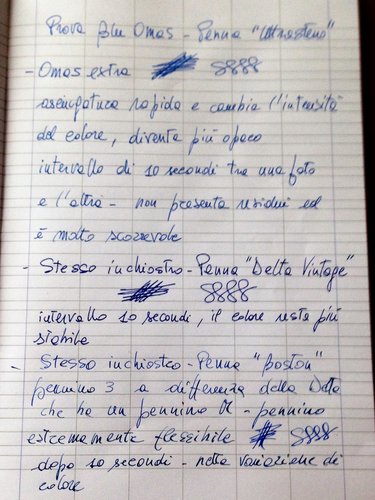 Prova blu Omas - Penna "Ultrasteno"
- Omas extra
asciugatura rapida e cambia l'intensità
del colore, diventa più opaco
intervallo di 10 secondi tra una foto
e l'altra - non presenta residui ed
è molto scorrevole
- Stesso inchiostro - Penna "Delta Vintage"
intervallo 10 secondi, il colore resta più
stabile
- Stesso inchiostro - Penna "Boston"
pennino 3 a differenza della Delta
che ha un pennino M - pennino
estremamente flessibile
dopo 10 secondi - netta variazione di
colore